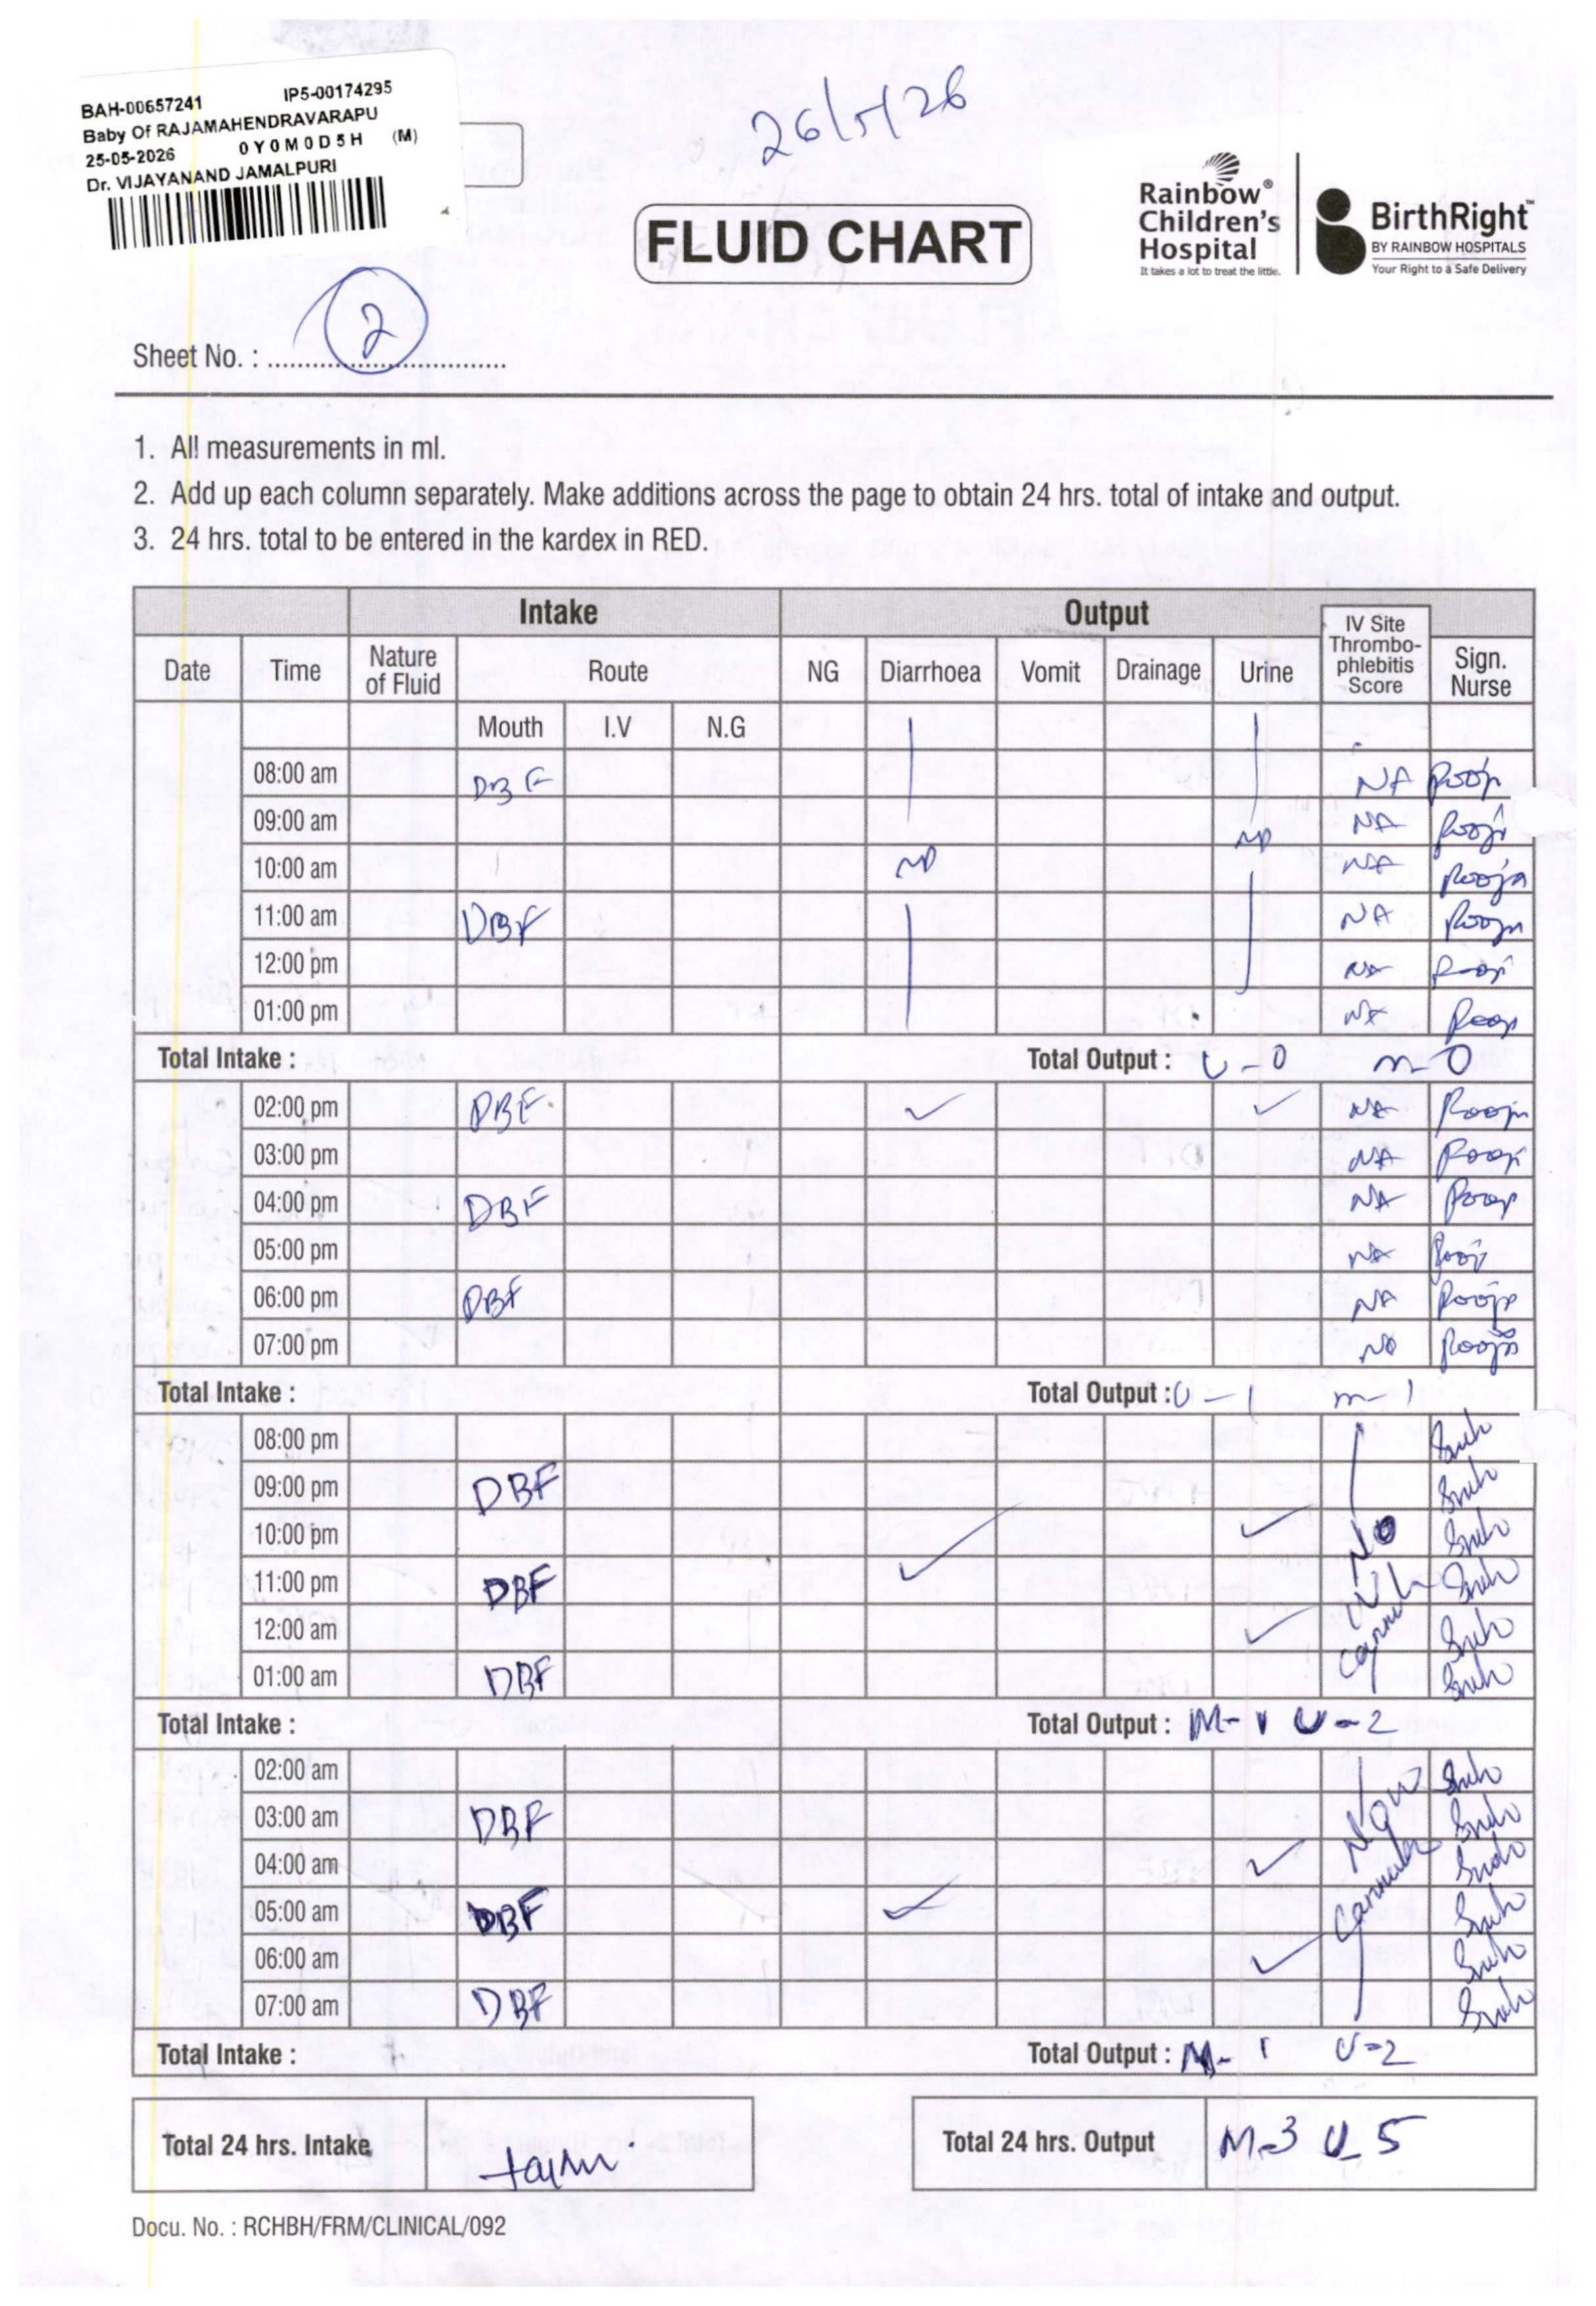 BAH-00657241 IP5-00174295
Baby Of RAJAMAHENDRAVARAPU
25-05-2026 0Y0M0D5H (M)
Dr. VIJAYANAND JAMALPURI
26/5/26
FLUID CHART
Rainbow®
Children's
Hospital
It takes a lot to treat the little.
BirthRight™
BY RAINBOW HOSPITALS
Your Right to a Safe Delivery
Sheet No. : 2
1. All measurements in ml.
2. Add up each column separately. Make additions across the page to obtain 24 hrs. total of intake and output.
3. 24 hrs. total to be entered in the kardex in RED.
Intake Output
Date Time Nature of Fluid Route NG Diarrhoea Vomit Drainage Urine IV Site Thrombo-phlebitis Score Sign. Nurse
Mouth I.V N.G
08:00 am DBF NA Pooja
09:00 am NP NA Pooja
10:00 am NP NA Pooja
11:00 am DBF NA Pooja
12:00 pm NA Pooja
01:00 pm NA Pooja
Total Intake : Total Output : U-0 m-0
02:00 pm DBF ✓ ✓ NA Pooja
03:00 pm NA Pooja
04:00 pm DBF NA Pooja
05:00 pm NA Pooja
06:00 pm DBF NA Pooja
07:00 pm NA Pooja
Total Intake : Total Output : U-1 m-1
08:00 pm
09:00 pm DBF
10:00 pm ✓ No
11:00 pm DBF ✓
12:00 am ✓
01:00 am DBF
Total Intake : Total Output : M-1 U-2
02:00 am
03:00 am DBF
04:00 am ✓
05:00 am DBF ✓
06:00 am ✓
07:00 am DBF
Total Intake : Total Output : M-1 U-2
Total 24 hrs. Intake
Total 24 hrs. Output M-3 U-5
Docu. No. : RCHBH/FRM/CLINICAL/092